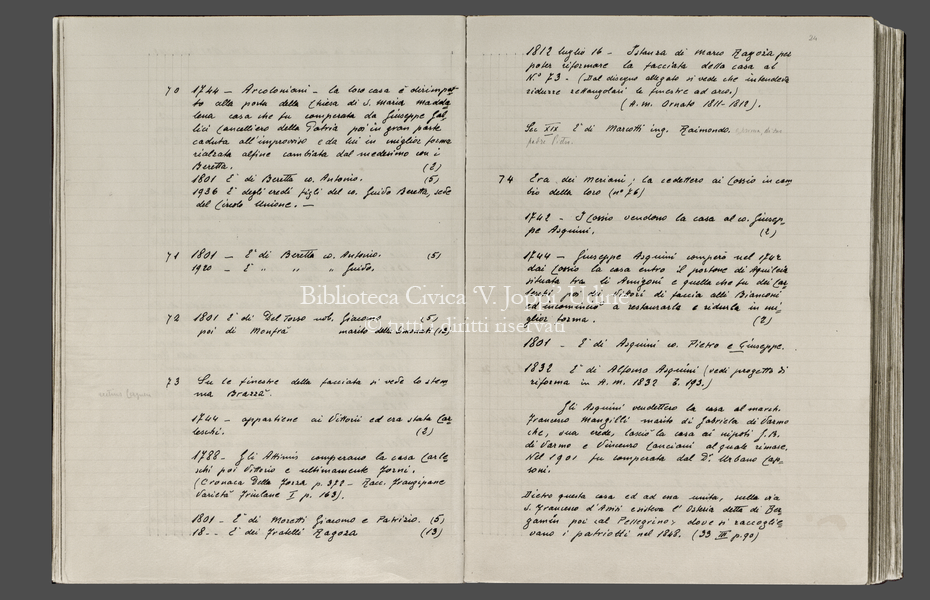 70 1744 - Arcoloniani - la loro casa è dirimpet-
to alla porta della Chiesa di S. Maria Madda
lena casa che fu comperata da Giuseppe Gal-
lici Cancelliero della Patria poi in gran parte
caduta all'improvviso e da lui in miglior forma
rialzata alfine cambiata dal medesimo con i
Beretta. (2)
1801 E' di Beretta co. Antonio. (5)
1936 E' degli eredi figli del co. Guido Beretta, sede
del Circolo Unione. -
71 1801 - E' di Beretta co. Antonio. (5)
1920 - E' " " " Guido.
72 1801 E' di Del Torso nob. Giacomo (5)
poi di Monfrà marito della
73 Su le finestre della facciata si vede lo stem
ma Brazzà.
1744 - appartiene ai Vittorii ed era stata Car-
leschi. (2)
1788 - Gli Attimis comperano la casa Carle-
schi poi Vittorio e ultimamente Forni.
(Cronaca Della Forza p. 372 - Racc. Frangipane
Varietà Friulane I p. 163).
1801 - E' di Moretti Giacomo e Patrizio. (5)
18-- E' dei Fratelli Ragoza (13)
24
1812 luglio 16 - Istanza di Marco Ragoza per
poter riformare la facciata della casa al
N.° 73. - (Dal disegno allegato si vede che intendeva
ridurre rettangolari le finestre ad arco.)
(A. m. Ornato 1811-1812).
Sec XIX E' di Marcotti ing. Raimondo.
74 Era dei Meriani; la cedettero ai Cossio in cam
bio della loro (n° 76)
1742 - I Cossio vendono la casa al co. Giusep-
pe Asquini. (2)
1744 - Giuseppe Asquini comperò nel 1742
dai Cossio la casa entro il portone di Aquileia
situata tra li Amigoni e quella che fu dei Car
leschi ora di Vittori di faccia alli Bianconi
ed incominciò a restaurarla e ridurla in mi-
glior forma. (2)
Biblioteca Civica 'V. Joppi' Udine
© tutti i diritti riservati
1801 - E' di Asquini co. Pietro e Giuseppe.
1832 E' di Alfonso Asquini (vedi progetto di
riforma in A. m. 1832 E. 193.)
Gli Asquini vendettero la casa al march.
Francesco Mangilli marito di Gabriela di Varmo
che, sua erede, lasciò la casa ai nipoti G.B.
di Varmo e Vincenzo Canciani al quale rimase.
Nel 1901 fu comperata dal D.r Urbano Cap-
soni.
Dietro questa casa ed ad essa unita, sulla via
S. Francesco d'Assisi esisteva l'Osteria detta di Ber
gamin poi «al Pellegrino» dove si raccoglie
vano i patriotti nel 1848. (33 III p. 90)